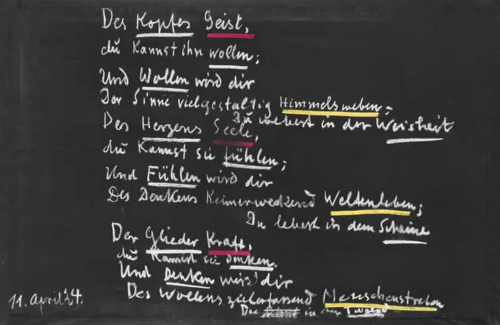 Des Kopfes Geist,
du kannst ihn wollen;
Und Wollen wird dir
Der Sinne vielgestaltig Himmelsweben;
Du webest in der Weisheit
Des Herzens Seele,
du kannst sie fühlen;
Und Fühlen wird dir
Des Denkens keimerweckend Weltenleben;
Du lebest in dem Scheine
Der Glieder Kraft,
du kannst sie denken,
Und Denken wird dir
Des Wollens zielerfassend Menschenstreben
Du in der Tugend
11. April 24.